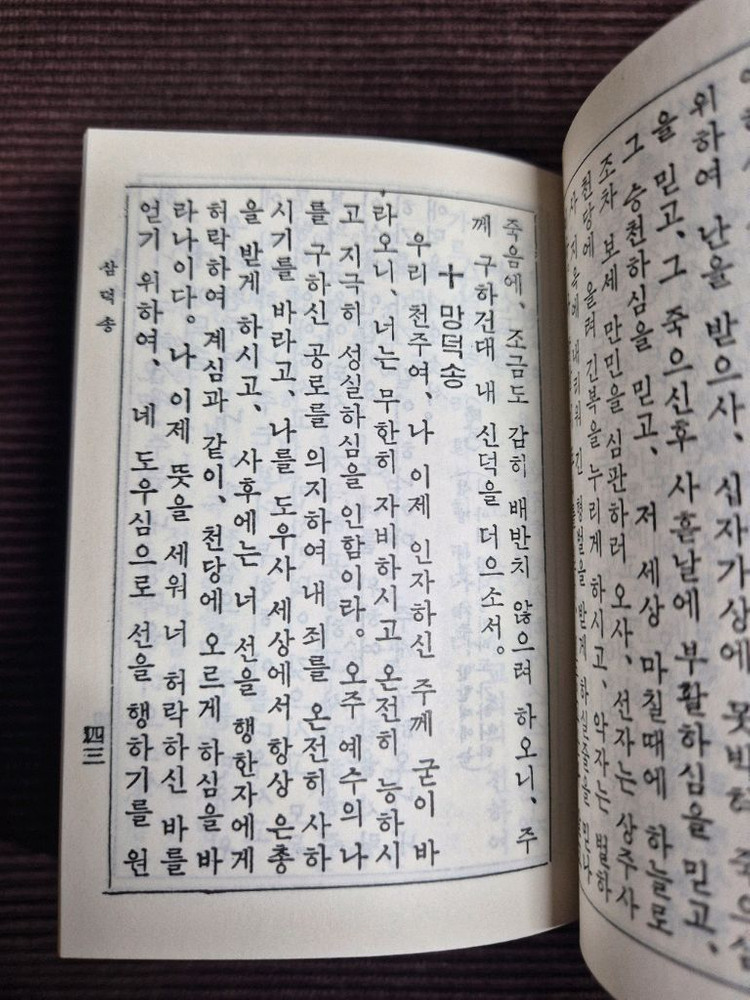 위하여 난을 받으사, 십자가상에 못박혀 죽으심
을 믿고, 그 죽으신후 사흗날에 부활하심을 믿고,
그 승천하심을 믿고, 저 세상 마칠때에 하늘로
조차 보세 만민을 심판하러 오사, 선자는 상주사
천당에 올려 긴복을 누리게 하시고, 악자는 벌하
사 지옥에 내리워 긴 형벌을 받게 하실줄을 믿나
죽음에, 조금도 감히 배반치 않으려 하오니, 주
께 구하건대 내 신덕을 더으소서。
✝ 망덕송
우리 천주여, 나 이제 인자하신 주께 굳이 바
라오니, 너는 무한히 자비하시고 온전히 능하시
고 지극히 성실하심을 인함이라。 오주 예수의 나
를 구하신 공로를 의지하여 내 죄를 온전히 사하
시기를 바라고, 나를 도우사 세상에서 항상 은총
을 받게 하시고, 사후에는 너 선을 행한자에게
허락하여 계심과 같이, 천당에 오르게 하심을 바
라나이다。 나 이제 뜻을 세워 너 허락하신 바를
얻기 위하여, 네 도우심으로 선을 행하기를 원
삼덕송
四三